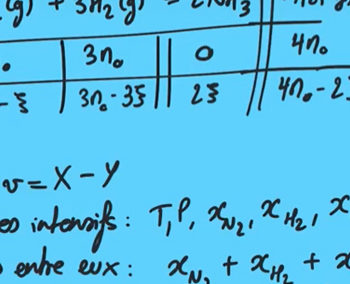 (g) + 3H₂(g) = 2NH₃
3n₀ 0 4n₀
-ξ 3n₀-3ξ 2ξ 4n₀-2
v = X - Y
intensifs : T, P, x_N₂, x_H₂, x
entre eux : x_N₂ + x_H₂ +